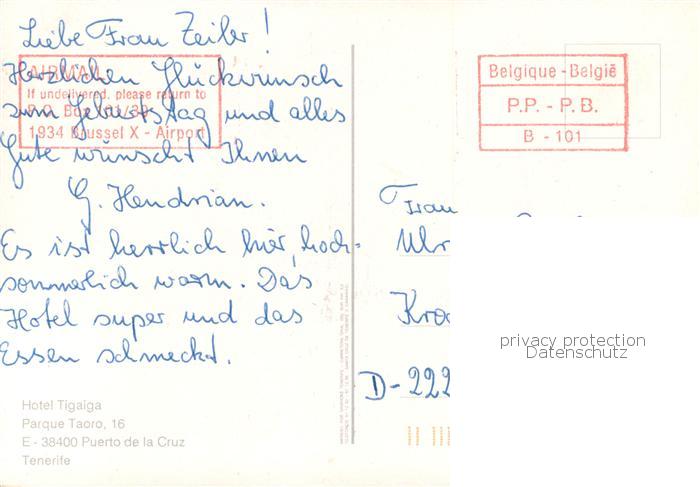 Liebe Frau Zeiler!
Herzlichen Glückwunsch
zum Geburtstag und alles
Gute wünscht Ihnen
G. Hendrian.
Es ist herrlich hier, hoch-
sommerlich warm. Das
Hotel super und das
Essen schmeckt.
AIRMAIL
If undelivered, please return to
P.O. Box
1934 Brussel X - Airport
Hotel Tigaiga
Parque Taoro, 16
E - 38400 Puerto de la Cruz
Tenerife
Belgique - België
P.P. - P.B.
B - 101
Frau
Uhr
Kro
D-222
privacy protection
Datenschutz